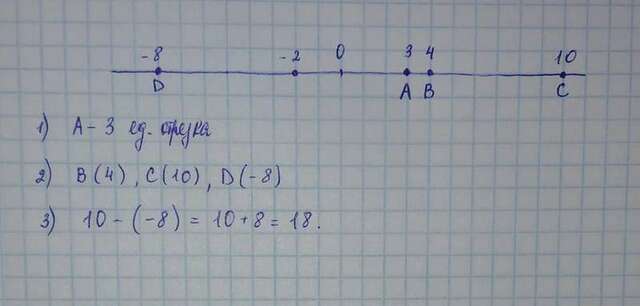 -8 -2 0 3 4 10
D A B C
1) A - 3 ед. отрезка
2) B(4), C(10), D(-8)
3) 10 - (-8) = 10 + 8 = 18.